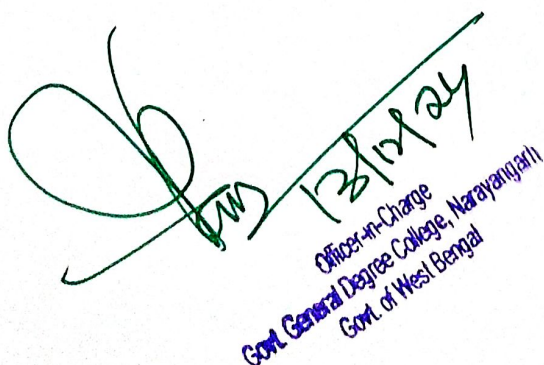 13/12/24
Officer-in-Charge
Govt. General Degree College, Narayangarh
Govt. of West Bengal